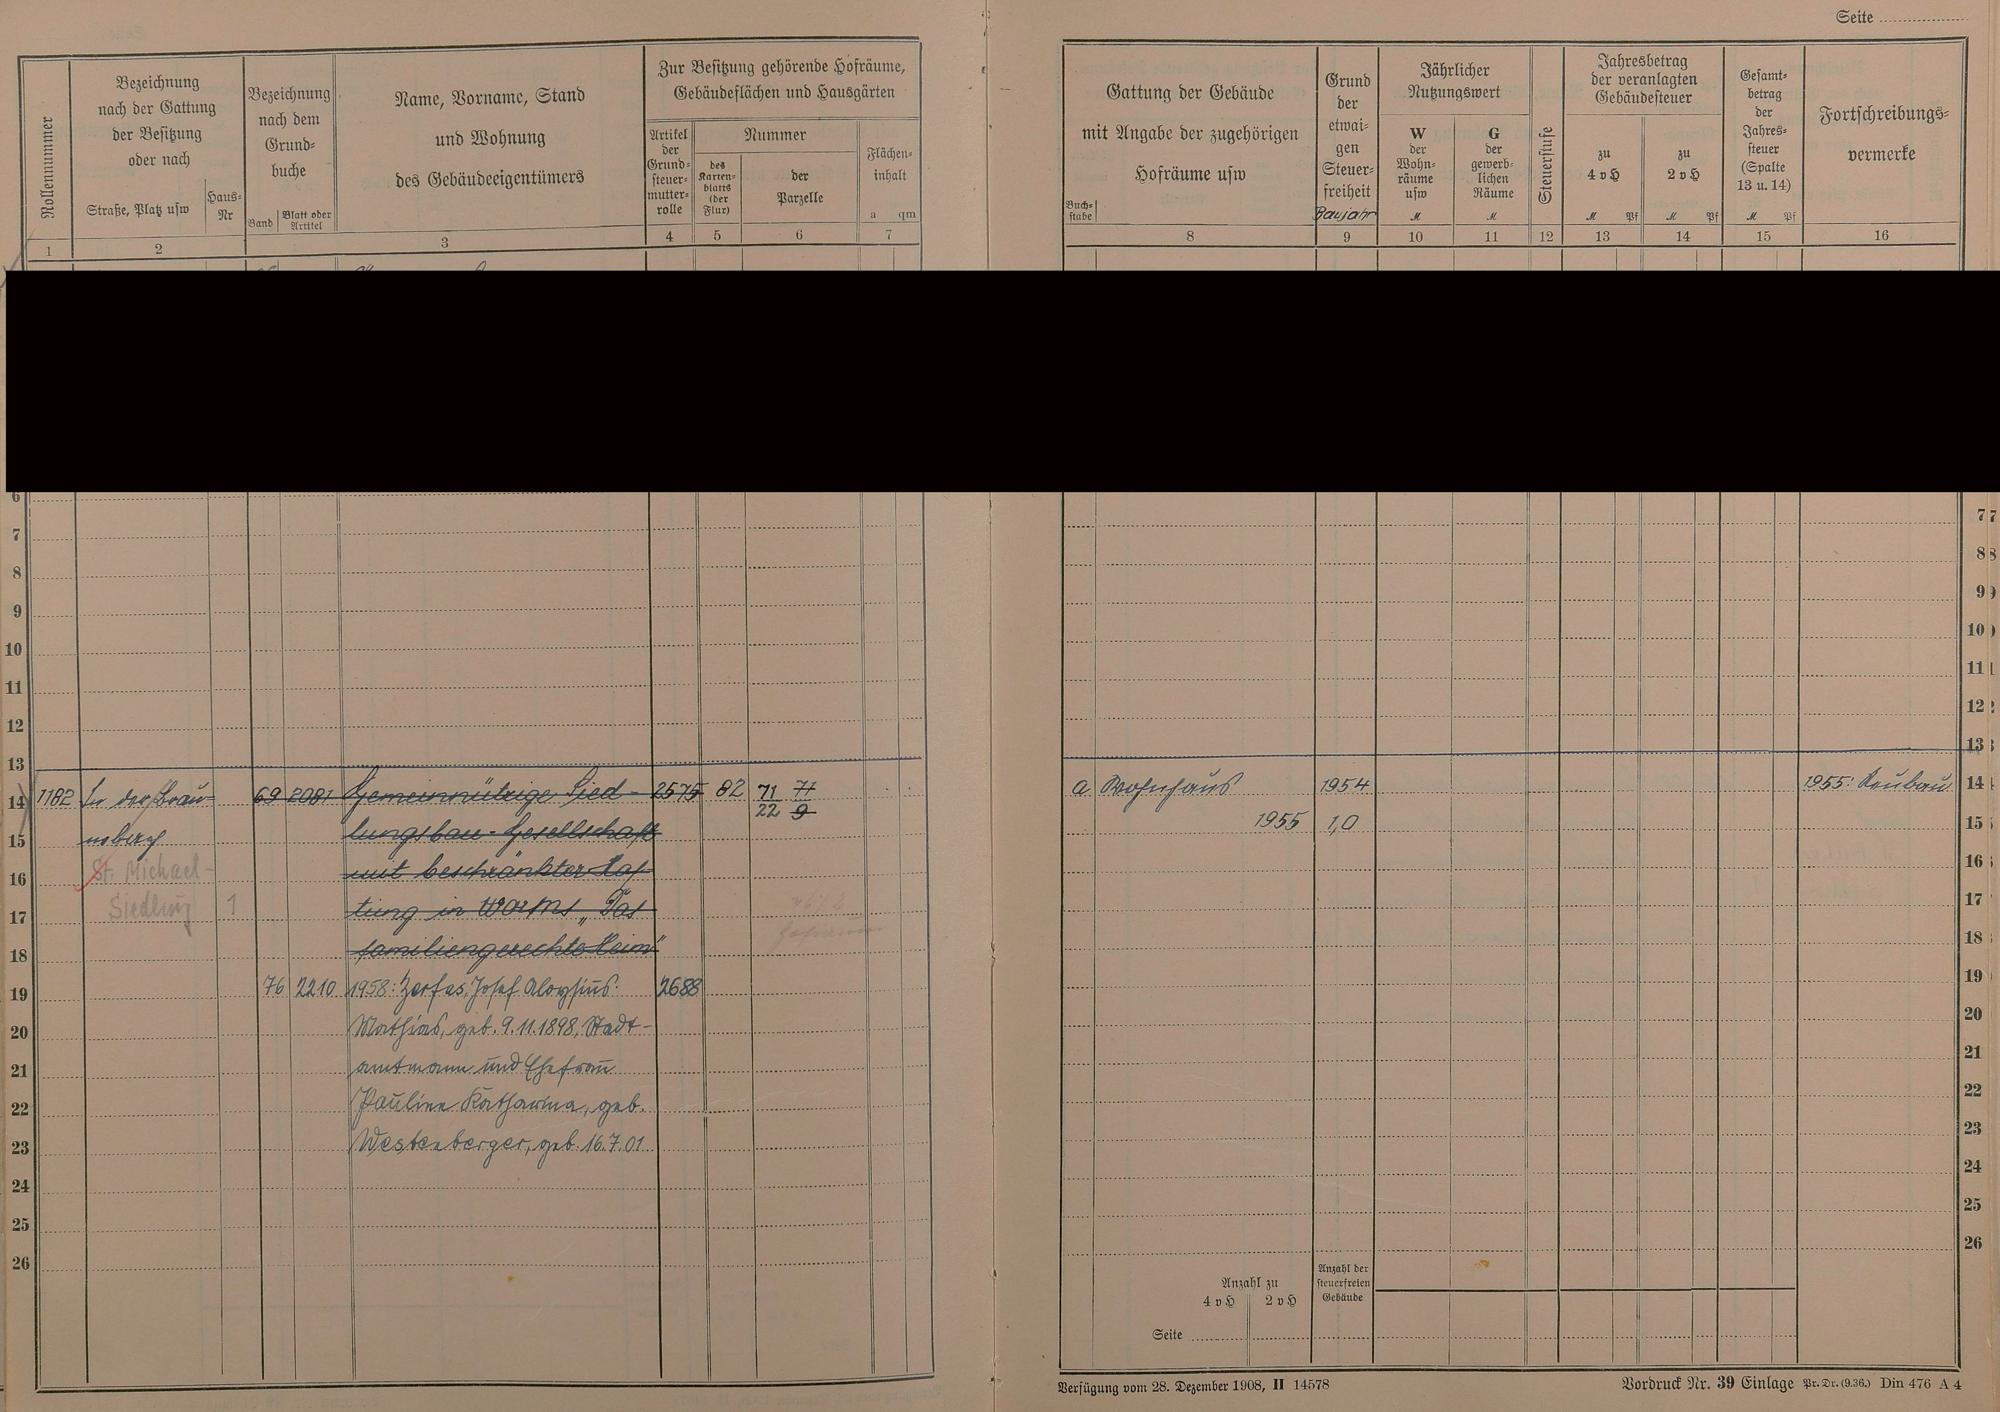 Seite
Rollennummer
Bezeichnung
nach der Gattung
der Besitzung
oder nach
Straße, Platz usw
Haus-
Nr
Bezeichnung
nach dem
Grund-
buche
Band
Blatt oder
Artikel
Name, Vorname, Stand
und Wohnung
des Gebäudeeigentümers
Zur Besitzung gehörende Hofräume,
Gebäudeflächen und Hausgärten
Artikel
der
Grund-
steuer-
mutter-
rolle
Nummer
des
Karten-
blatts
(der
Flur)
der
Parzelle
Flächen-
inhalt
a qm
1 2 3 4 5 6 7
Buch-
stabe
Gattung der Gebäude
mit Angabe der zugehörigen
Hofräume usw
Grund
der
etwai-
gen
Steuer-
freiheit
Baujahr
Jährlicher
Nutzungswert
W
der
Wohn-
räume
usw
M
G
der
gewerb-
lichen
Räume
M
Steuerstufe
Jahresbetrag
der veranlagten
Gebäudesteuer
zu
4 v H
M Pf
zu
2 v H
M Pf
Gesamt-
betrag
der
Jahres-
steuer
(Spalte
13 u. 14)
M Pf
Fortschreibungs-
vermerke
8 9 10 11 12 13 14 15 16
6
7 7
8 8
9 9
10 10
11 11
12 12
13 13
14 1182 In der Brau- 69 2081 Gemeinnützige Sied- 2575 82 71/22 71/9 a Wohnhaus 1954 1955: Neubau 14
15 lungsbau-Gesellschaft 1955 1,0 15
16 St. Michael- mit beschränkter Haf- 16
17 Siedlung 1 tung in Worms „Das 17
18 familiengerechte Heim" 18
19 76 2210 1958: Zerfas, Josef Aloysius 2688 19
20 Mathias, geb. 9.11.1898, Stadt- 20
21 amtmann und Ehefrau 21
22 Pauline Katharina, geb. 22
23 Westenberger, geb. 16.7.01 23
24 24
25 25
26 26
Anzahl zu
4 v H 2 v H
Anzahl der
steuerfreien
Gebäude
Seite
Verfügung vom 28. Dezember 1908, II 14578
Vordruck Nr. 39 Einlage Pr. Dr. (9.36.) Din 476 A 4